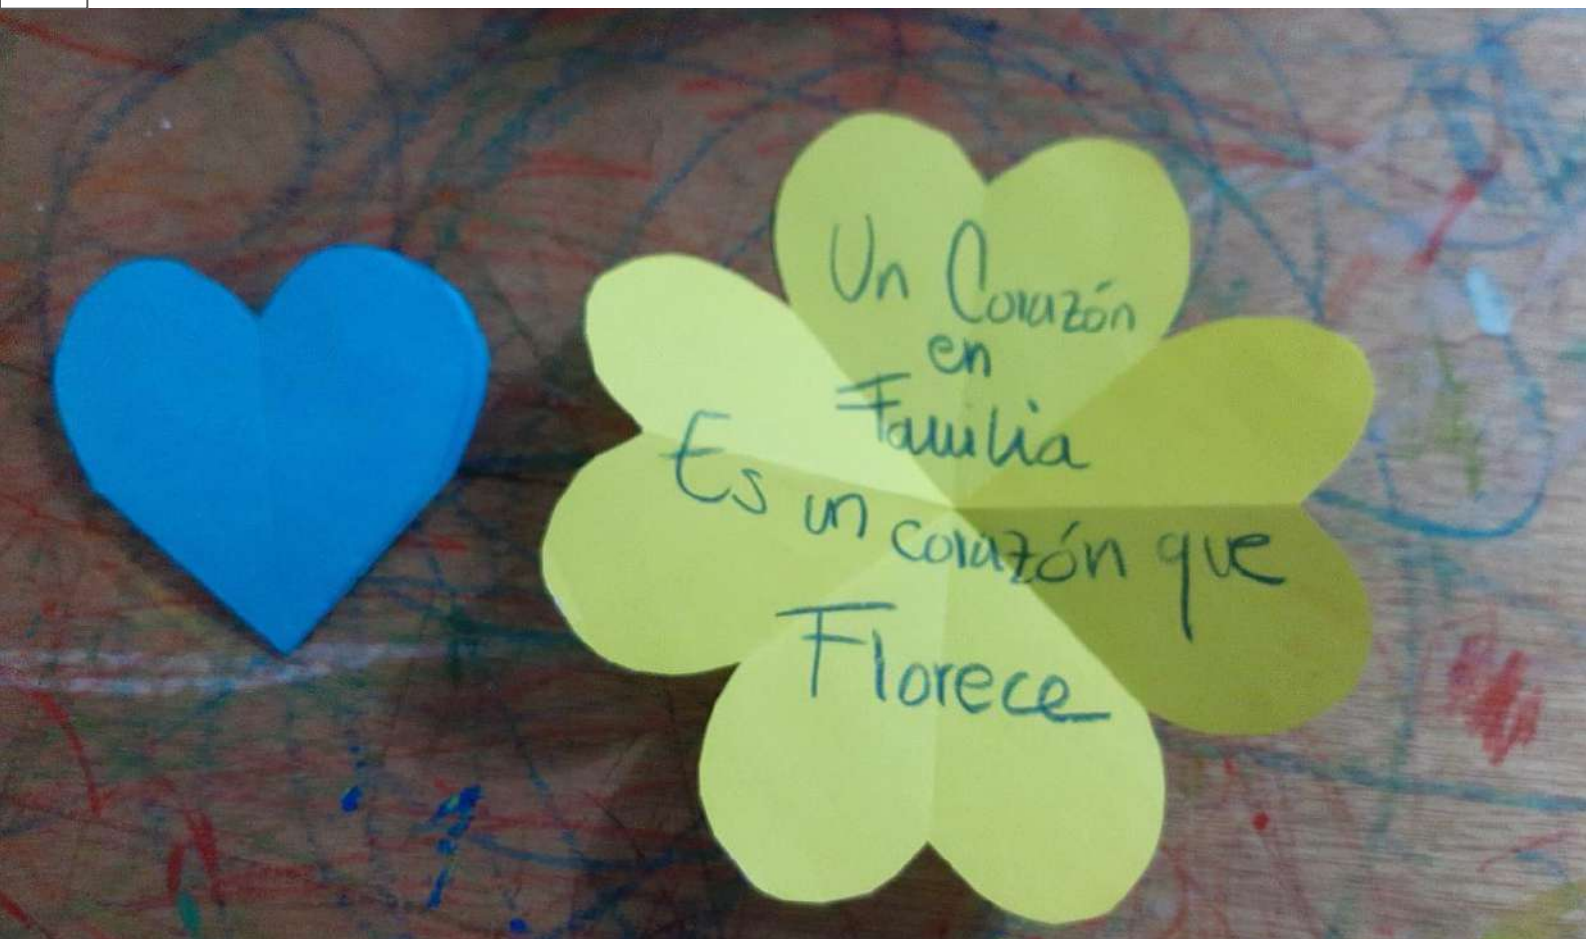 Un Corazón
en
Familia
Es un corazón que
Florece